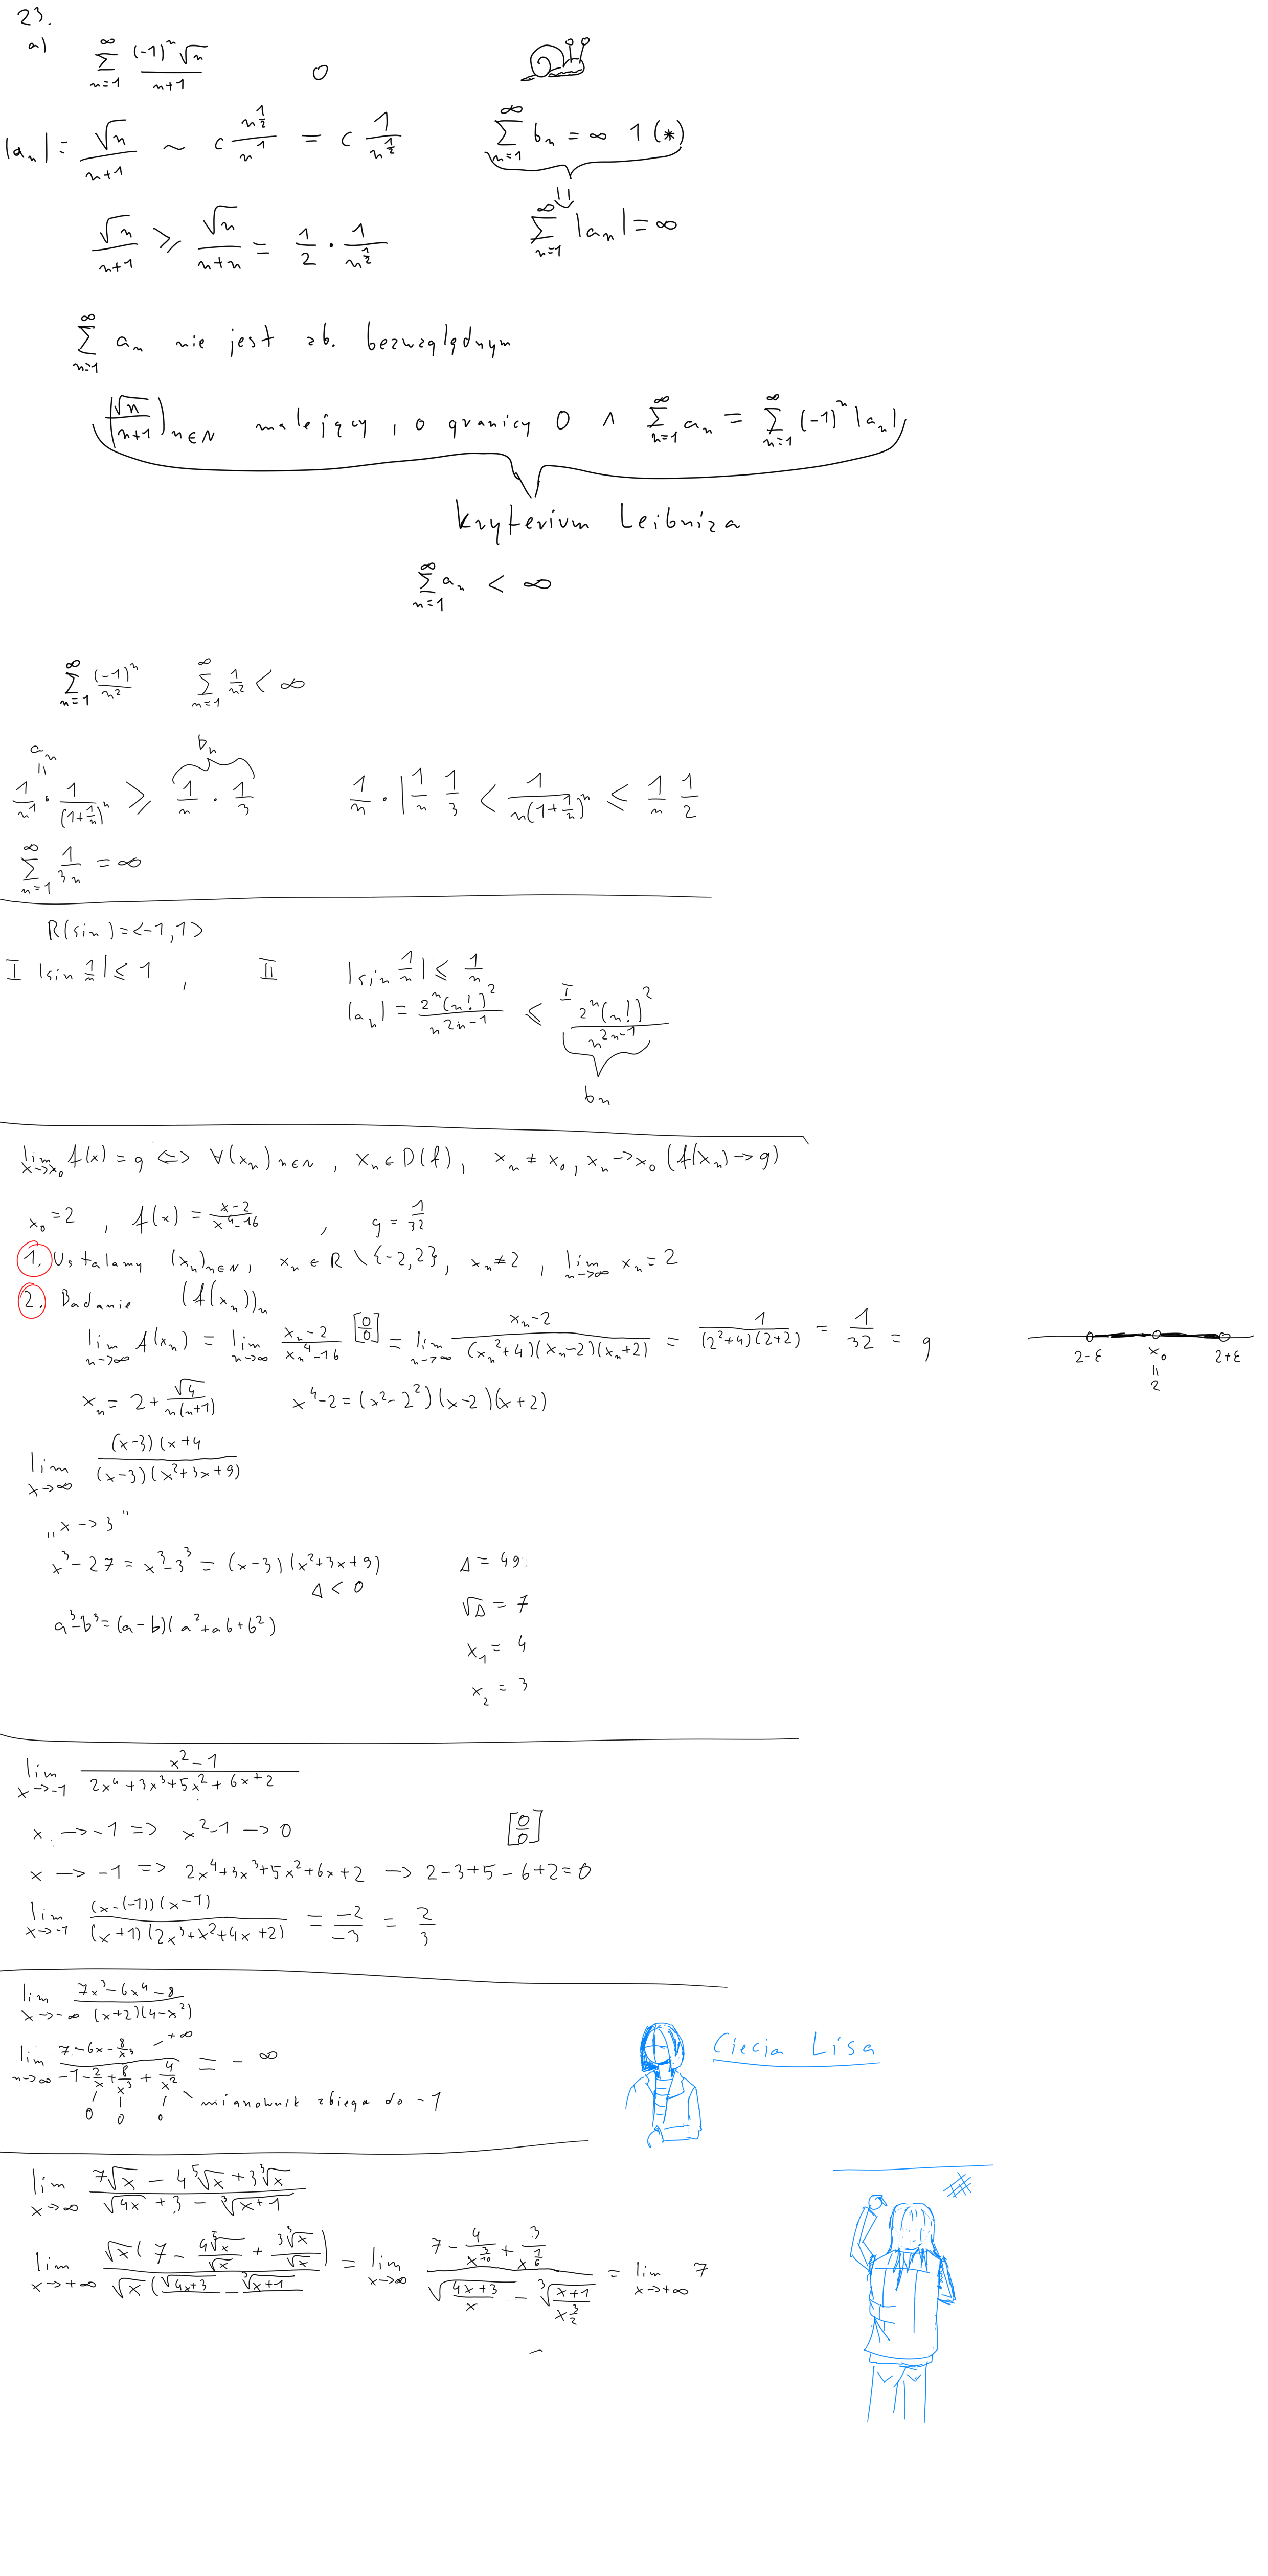 23.
a) ∑_{n=1}^{∞} (-1)^n √n / (n+1)    0
|a_n| = √n / (n+1) ~ c n^{1/2} / n^1 = c 1 / n^{1/2}    ∑_{n=1}^{∞} b_n = ∞ 1 (*)
⇓
√n / (n+1) ⩾ √n / (n+n) = 1/2 · 1 / n^{1/2}    ∑_{n=1}^{∞} |a_n| = ∞
∑_{n=1}^{∞} a_n nie jest zb. bezwzględnym
(√n / (n+1))_{n∈N} malejący, o granicy 0 ∧ ∑_{n=1}^{∞} a_n = ∑_{n=1}^{∞} (-1)^n |a_n|
Kryterium Leibniza
∑_{n=1}^{∞} a_n < ∞
∑_{n=1}^{∞} (-1)^n / n^2    ∑_{n=1}^{∞} 1/n^2 < ∞
a_n    b_n
=
1/n^1 · 1 / (1+1/n)^n ⩾ 1/n · 1/3    1/n · | 1/n 1/3 < 1 / (n(1+1/n)^n) ⩽ 1/n 1/2
∑_{n=1}^{∞} 1/3n = ∞
R(sin) = <-1,1>
I |sin 1/n| ⩽ 1 ,    II |sin 1/n| ⩽ 1/n
|a_n| = 2^n (n!)^2 / n^{2n-1} ⩽^I 2^n (n!)^2 / n^{2n-1}
b_n
lim_{x→x_0} f(x) = g ⇔ ∀(x_n)_{n∈N} , x_n ∈ D(f) , x_n ≠ x_0 , x_n → x_0 (f(x_n) → g)
x_0 = 2 , f(x) = (x-2) / (x^4-16) , g = 1/32
1. Ustalamy (x_n)_{n∈N} , x_n ∈ R \ {-2,2} , x_n ≠ 2 , lim_{n→∞} x_n = 2
2. Badanie (f(x_n))_n
lim_{n→∞} f(x_n) = lim_{n→∞} (x_n-2) / (x_n^4-16) [0/0] = lim_{n→∞} (x_n-2) / ((x_n^2+4)(x_n-2)(x_n+2)) = 1 / ((2^2+4)(2+2)) = 1/32 = g
2-ε    x_0    2+ε
=
2
x_n = 2 + √4 / (n(n+1))    x^4-2 = (x^2-2^2)(x-2)(x+2)
lim_{x→∞} (x-3)(x+4 / (x-3)(x^2+3x+9)
„x→3"
x^3-27 = x^3-3^3 = (x-3)(x^2+3x+9)    Δ = 49
Δ < 0
√Δ = 7
a^3-b^3 = (a-b)(a^2+ab+b^2)
x_1 = 4
x_2 = 3
lim_{x→-1} (x^2-1) / (2x^4+3x^3+5x^2+6x+2)
x → -1 => x^2-1 → 0    [0/0]
x → -1 => 2x^4+3x^3+5x^2+6x+2 → 2-3+5-6+2=0
lim_{x→-1} (x-(-1))(x-1) / ((x+1)(2x^3+x^2+4x+2)) = -2/-3 = 2/3
lim_{x→-∞} (7x^3-6x^4-8) / ((x+2)(4-x^2))
lim_{n→∞} (7-6x-8/x^3) / (-1-2/x+8/x^3+4/x^2) = -∞
+∞
0 0 0 mianownik zbiega do -1
Ciecia Lisa
lim_{x→∞} (7√x - 4⁵√x + 3³√x) / (√4x+3 - ³√x+1)
lim_{x→+∞} √x(7 - 4⁵√x/√x + 3³√x/√x) / √x(√4x+3 - ³√x+1 = lim_{x→∞} (7 - 4/x^{3/10} + 3/x^{1/6}) / (√((4x+3)/x) - ³√((x+1)/x^{3/2})) = lim_{x→+∞} 7